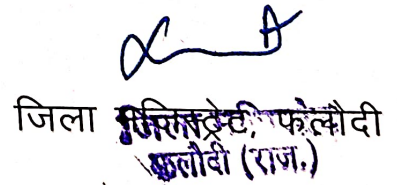 जिला मजिस्ट्रेट, फलौदी
फलौदी (राज.)